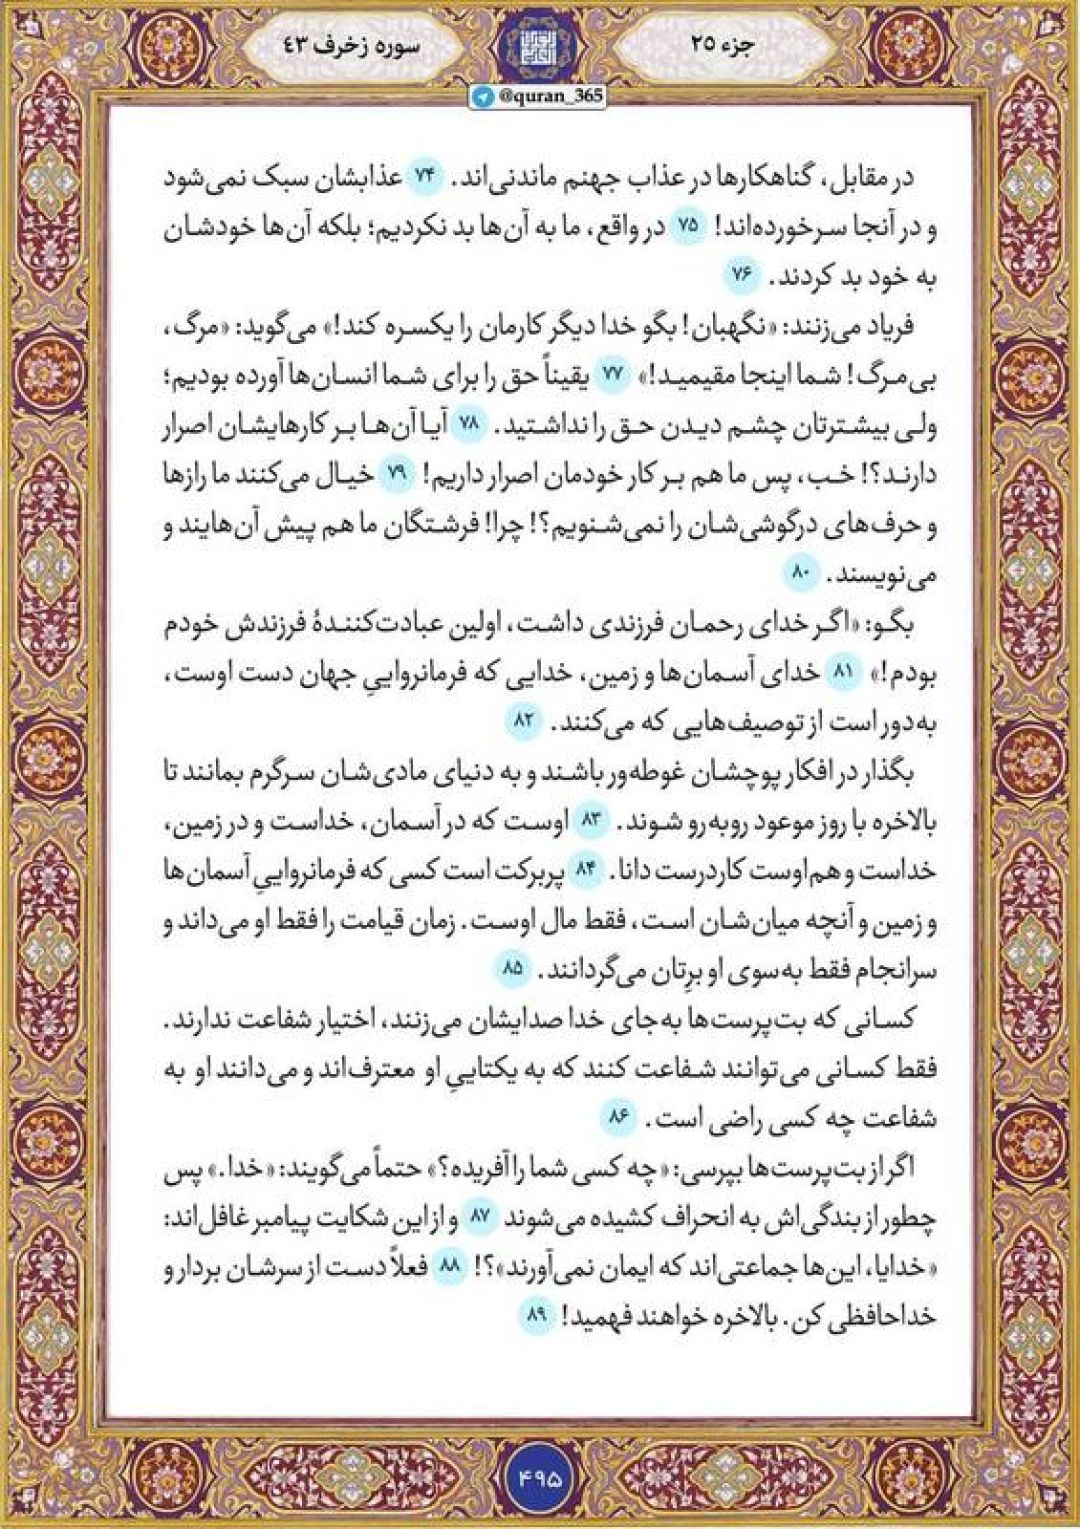 جزء ۲۵
سوره زخرف ۴۳
@quran_365
در مقابل، گناهکارها در عذاب جهنم ماندنی‌اند. ۷۴ عذابشان سبک نمی‌شود
و در آنجا سرخورده‌اند! ۷۵ در واقع، ما به آن‌ها بد نکردیم؛ بلکه آن‌ها خودشان
به خود بد کردند. ۷۶
فریاد می‌زنند: «نگهبان! بگو خدا دیگر کارمان را یکسره کند!» می‌گوید: «مرگ،
بی‌مرگ! شما اینجا مقیمید!» ۷۷ یقیناً حق را برای شما انسان‌ها آورده بودیم؛
ولی بیشترتان چشم دیدن حق را نداشتید. ۷۸ آیا آن‌ها بر کارهایشان اصرار
دارند؟! خب، پس ما هم بر کار خودمان اصرار داریم! ۷۹ خیال می‌کنند ما رازها
و حرف‌های درگوشی‌شان را نمی‌شنویم؟! چرا! فرشتگان ما هم پیش آن‌هایند و
می‌نویسند. ۸۰
بگو: «اگر خدای رحمان فرزندی داشت، اولین عبادت‌کنندهٔ فرزندش خودم
بودم!» ۸۱ خدای آسمان‌ها و زمین، خدایی که فرمانرواییِ جهان دست اوست،
به‌دور است از توصیف‌هایی که می‌کنند. ۸۲
بگذار در افکار پوچشان غوطه‌ور باشند و به دنیای مادی‌شان سرگرم بمانند تا
بالاخره با روز موعود روبه‌رو شوند. ۸۳ اوست که در آسمان، خداست و در زمین،
خداست و هم‌اوست کاردرست دانا. ۸۴ پربرکت است کسی که فرمانرواییِ آسمان‌ها
و زمین و آنچه میان‌شان است، فقط مال اوست. زمان قیامت را فقط او می‌داند و
سرانجام فقط به‌سوی او برِتان می‌گردانند. ۸۵
کسانی که بت‌پرست‌ها به‌جای خدا صدایشان می‌زنند، اختیار شفاعت ندارند.
فقط کسانی می‌توانند شفاعت کنند که به یکتاییِ او معترف‌اند و می‌دانند او به
شفاعت چه کسی راضی است. ۸۶
اگر از بت‌پرست‌ها بپرسی: «چه کسی شما را آفریده؟» حتماً می‌گویند: «خدا.» پس
چطور از بندگی‌اش به انحراف کشیده می‌شوند ۸۷ و از این شکایت پیامبر غافل‌اند:
«خدایا، این‌ها جماعتی‌اند که ایمان نمی‌آورند»؟! ۸۸ فعلاً دست از سرشان بردار و
خداحافظی کن. بالاخره خواهند فهمید! ۸۹
۴۹۵